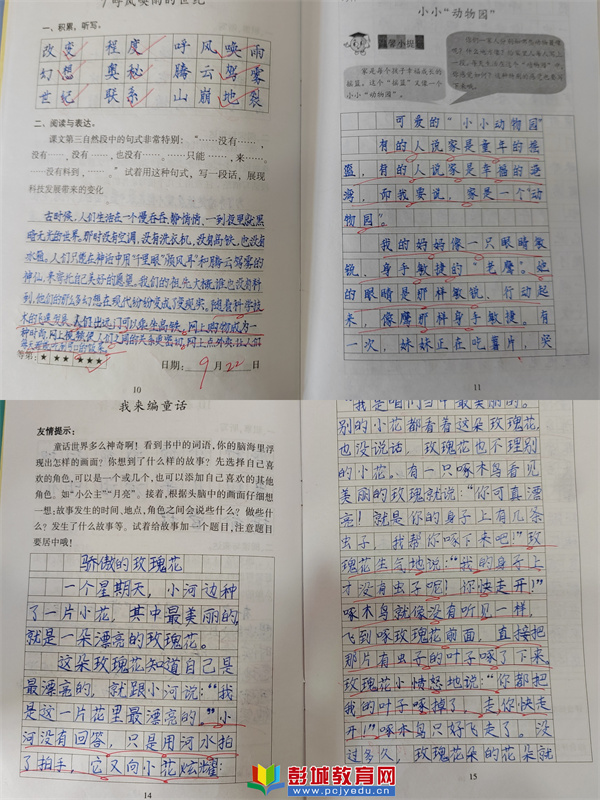 7 呼风唤雨的世纪
一、积累，听写。
改变 程度 呼风唤雨
幻想 奥秘 腾云驾雾
世纪 联系 山崩地裂
二、阅读与表达。
课文第三自然段中的句式非常特别：“……没有……，
没有……，没有……，也没有……。只能……，来……。
……没有料到，……。”试着用这种句式，写一段话，展现
科技发展带来的变化
古时候，人们生活在一个慢吞吞、静悄悄、一到夜里就黑
暗无光的世界。那时没有空调，没有洗衣机，没有高铁，也没有
冰箱。人们只能在神话中用“千里眼”“顺风耳”和腾云驾雾的
神仙，来寄托自己美好的愿望。我们的祖先大概谁也没有料
到，他们的那么多幻想在现代纷纷变成了现实。随着科学技
术的飞速发展，人们出远门可以乘坐高铁，网上购物成为一
种时尚，网上视频使人们之间的关系更密切，网上点外卖，让人们
等第：★★★ ★★★
日期：9月22日
10
小小“动物园”
温馨小提示
家是每个孩子幸福成长的
摇篮，这个“摇篮”又像一个
小小“动物园”。
可爱的“小小动物园”
有的人说家是童年的摇
篮，有的人说家是幸福的港
湾，而我要说，家是一个“动
物园”。
我的妈妈像一只眼睛敏
锐，身手敏捷的“老鹰”。她
的眼睛是那样敏锐，行动起
来，像鹰那样身手敏捷。有
一次，妹妹正在吃薯片，突
11
我来编童话
友情提示：
童话世界多么神奇啊！看到书中的词语，你的脑海里浮
现出怎样的画面？你想到了什么样的故事？先选择自己喜
欢的角色，可以是一个或几个，也可以添加自己喜欢的其他
角色。如“小公主”“月亮”。接着，根据头脑中的画面仔细想
一想：故事发生的时间、地点，角色之间会说些什么？做些什
么？发生了什么故事等。试着给故事加一个题目，注意题目
要居中哦！
骄傲的玫瑰花
一个星期天，小河边种
了一片小花，其中最美丽的，
就是一朵漂亮的玫瑰花。
这朵玫瑰花知道自己是
最漂亮的，就跟小河说：“我
是这一片花里最漂亮的。”小
河没有回答，只是用河水拍
了拍手，它又向小花炫耀：
14
“我是咱们当中最美丽的。”
别的小花都看着这朵玫瑰花，
也没说话，玫瑰花也不理别
的小花。有一只啄木鸟看见
美丽的玫瑰就说：“你可真漂
亮！就是你的身子上有几条
虫子，我帮你啄下来吧！”玫
瑰花生气地说：“我的身子上
才没有虫子呢！你快走开！”
啄木鸟就像没有听见一样，
飞到啄玫瑰花前面，直接把
那片有虫子的叶子啄了下来。
玫瑰花小愤怒地说：“你都把
我的叶子啄掉了，走你快走
开！”啄木鸟只好飞走了。没
过多久，玫瑰花朵的花朵就
15
彭城教育网
www.pcjyedu.cn